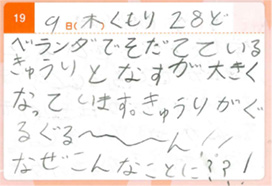 19 9日(木)くもり 28ど
ベランダでそだてている
きゅうりとなすが大きく
なっています。きゅうりがぐ
るぐる〜〜〜ん!!
なぜこんなことに??!